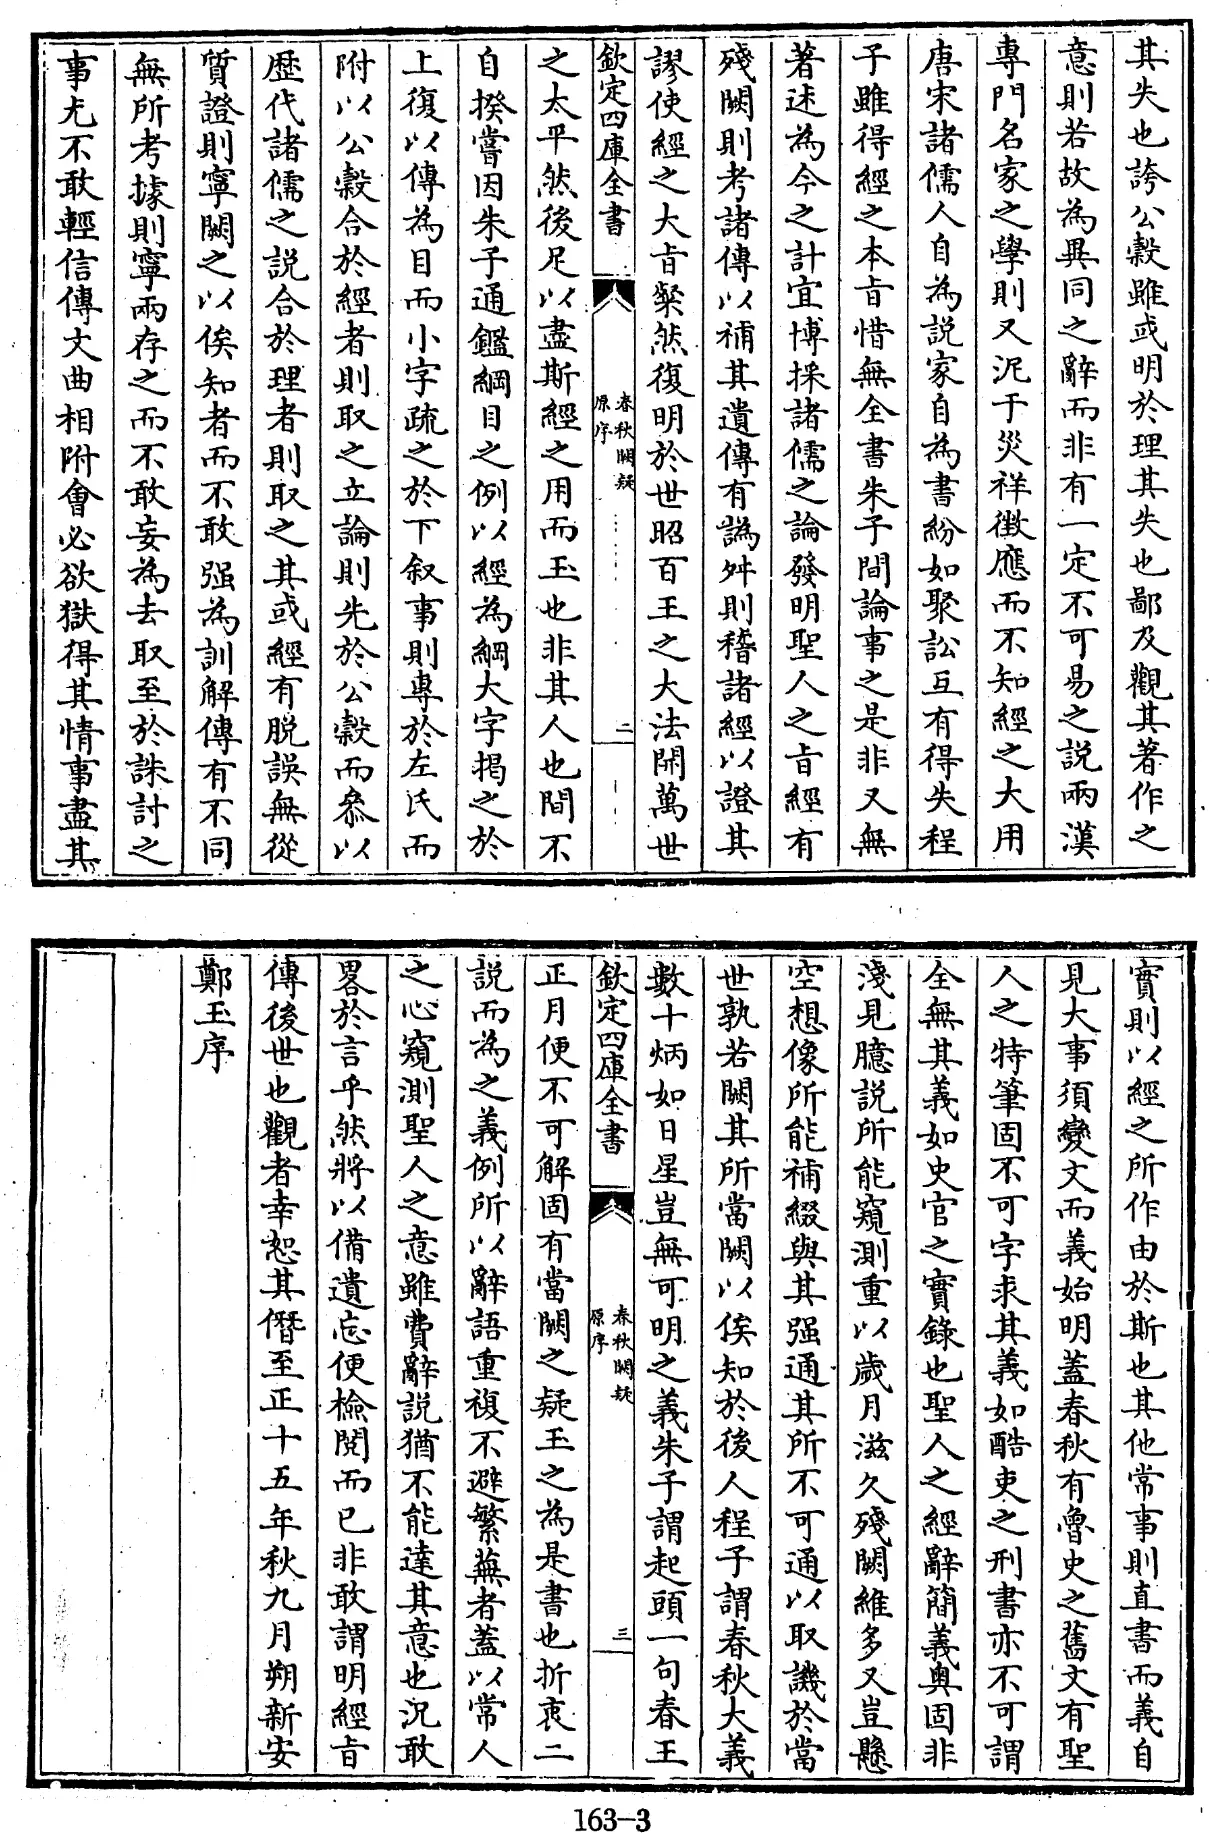 其失也誇公穀雖或明於理其失也鄙及觀其著作之
意則若故為異同之辭而非有一定不可易之説兩漢
專門名家之學則又泥于災祥徴應而不知經之大用
唐宋諸儒人自為説家自為書紛如聚訟互有得失程
子雖得經之本旨惜無全書朱子間論事之是非又無
著述為今之計宜博採諸儒之論發明聖人之旨經有
殘闕則考諸傳以補其遺傳有譌舛則稽諸經以證其
謬使經之大旨粲然復明於世昭百王之大法開萬世
欽定四庫全書
春秋闕疑
原序
二
之太平然後足以盡斯經之用而玉也非其人也間不
自揆嘗因朱子通鑑綱目之例以經為綱大字揭之於
上復以傳為目而小字疏之於下叙事則專於左氏而
附以公穀合於經者則取之立論則先於公穀而叅以
歴代諸儒之説合於理者則取之其或經有脱誤無從
質證則寧闕之以俟知者而不敢强為訓解傳有不同
無所考據則寧兩存之而不敢妄為去取至於誅討之
事尤不敢輕信傳文曲相附會必欲獄得其情事盡其
實則以經之所作由於斯也其他常事則直書而義自
見大事須變文而義始明蓋春秋有魯史之舊文有聖
人之特筆固不可字求其義如酷吏之刑書亦不可謂
全無其義如史官之實錄也聖人之經辭簡義奥固非
淺見臆説所能窺測重以歲月滋久殘闕維多又豈懸
空想像所能補綴與其强通其所不可通以取譏於當
世孰若闕其所當闕以俟知於後人程子謂春秋大義
數十炳如日星豈無可明之義朱子謂起頭一句春王
欽定四庫全書
春秋闕疑
原序
三
正月便不可解固有當闕之疑玉之為是書也折衷二
説而為之義例所以辭語重複不避繁蕪者蓋以常人
之心窺測聖人之意雖費辭説猶不能達其意也況敢
畧於言乎然將以備遺忘便檢閲而已非敢謂明經旨
傳後世也觀者幸恕其僭至正十五年秋九月朔新安
鄭玉序
163-3